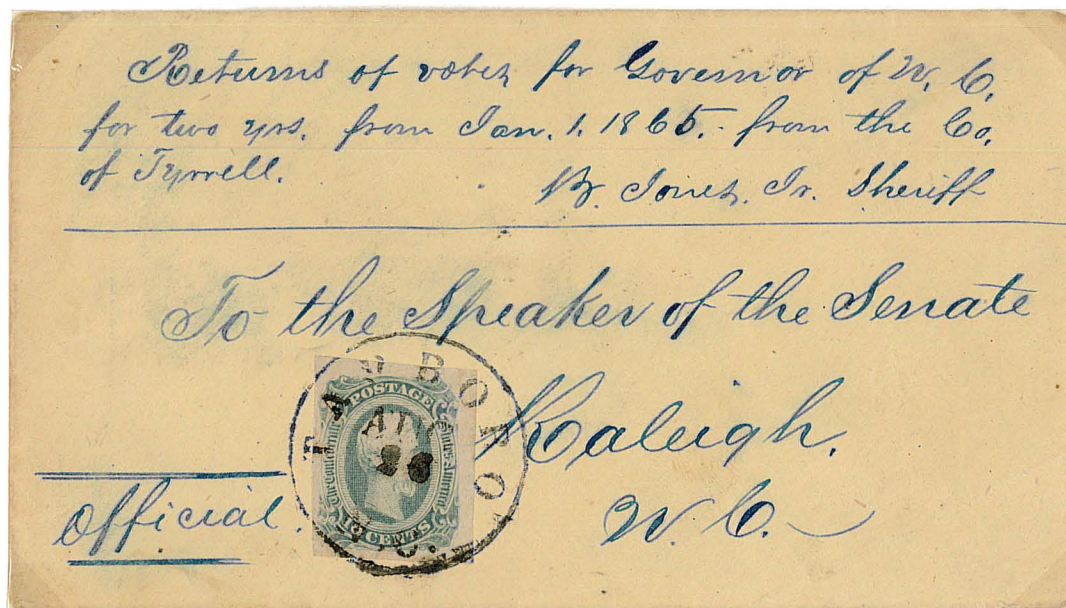 Returns of votes for Governor of N. C.
for two yrs. from Jan. 1. 1865. from the Co.
of Tyrrell.
B. Jones. Jr. Sheriff
To the Speaker of the Senate
Raleigh.
N. C.
Official.
TARBORO
AUG
N.C.
POSTAGE
The Confederate States America
CENTS